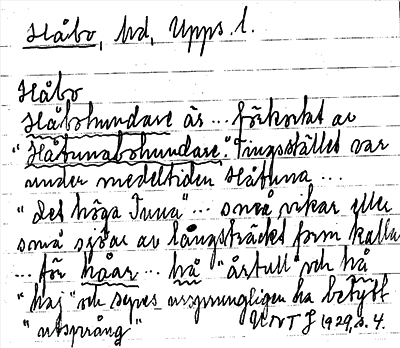 Håbo, hd, Upps. l.
Håbo
Håbohundare är ... förkortat av
"Håtunabohundare". Tingsstället var
under medeltiden Håtuna ...
"det höga Tuna" ... små vikar eller
små sjöar av långsträckt form kallas
... för håar ... hå "årtull" och hå
"haj" och synes ursprungligen ha betytt
"utsprång" UNT 1929, s. 4.